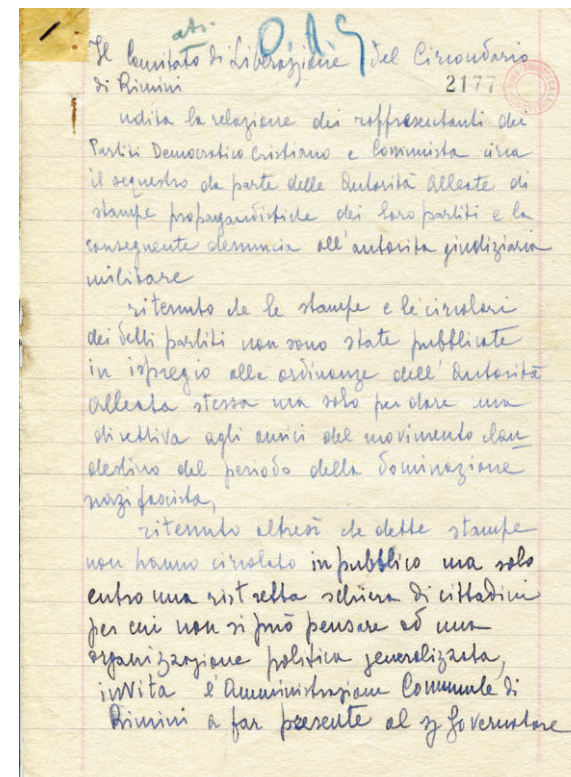 atti
Il Comitato di Liberazione del Circondario
di Rimini
2177
udita la relazione dei rappresentanti dei
Partiti Democratico Cristiano e Comunista circa
il sequestro da parte delle Autorità Alleate di
stampe propagandistiche dei loro partiti e la
conseguente denuncia all'autorità giudiziaria
militare
ritenuto che le stampe e le circolari
dei detti partiti non sono state pubblicate
in ispregio alle ordinanze dell'Autorità
Alleata stessa ma solo per dare una
direttiva agli amici del movimento clan
destino del periodo della dominazione
nazifascista,
ritenuto altresì che dette stampe
non hanno circolato in pubblico ma solo
entro una ristretta schiera di cittadini
per cui non si può pensare ad una
organizzazione politica generalizzata,
invita l'Amministrazione Comunale di
Rimini a far presente al Governatore